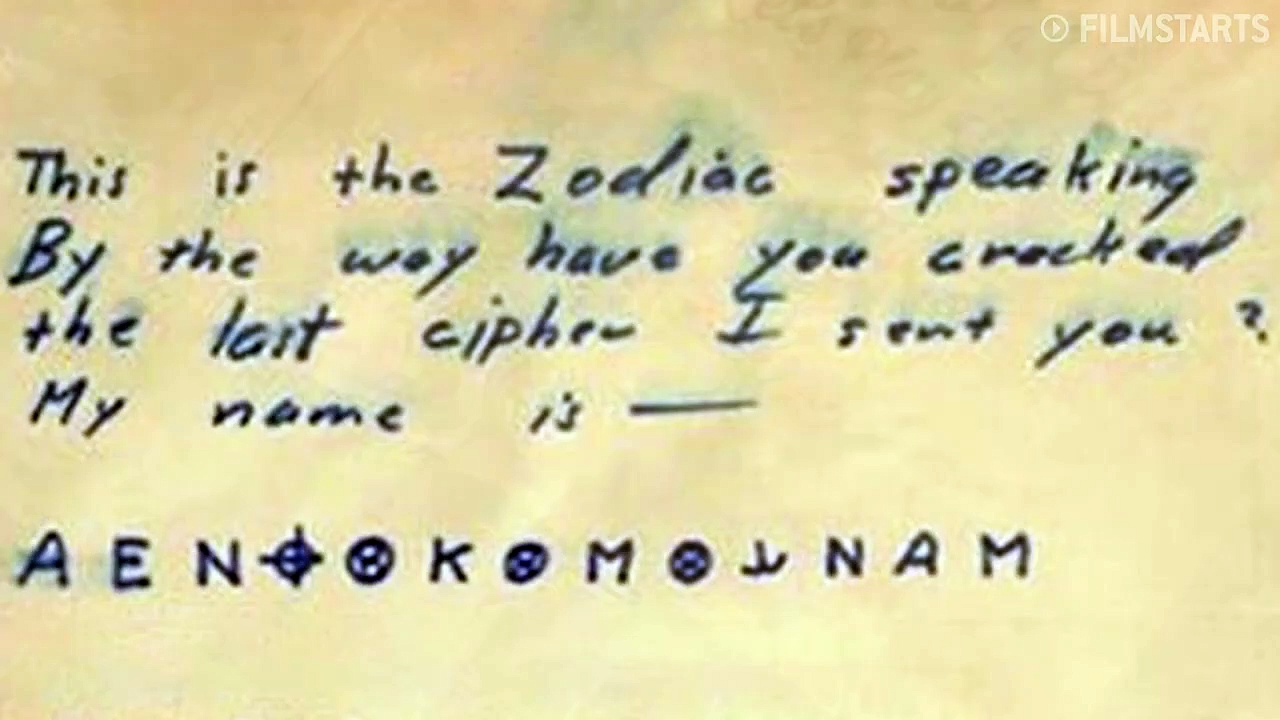 FILMSTARTS
This is the Zodiac speaking
By the way have you cracked
the last cipher I sent you ?
My name is —
A E N ⌖ ⊗ K ⊗ M ⊗ N A M